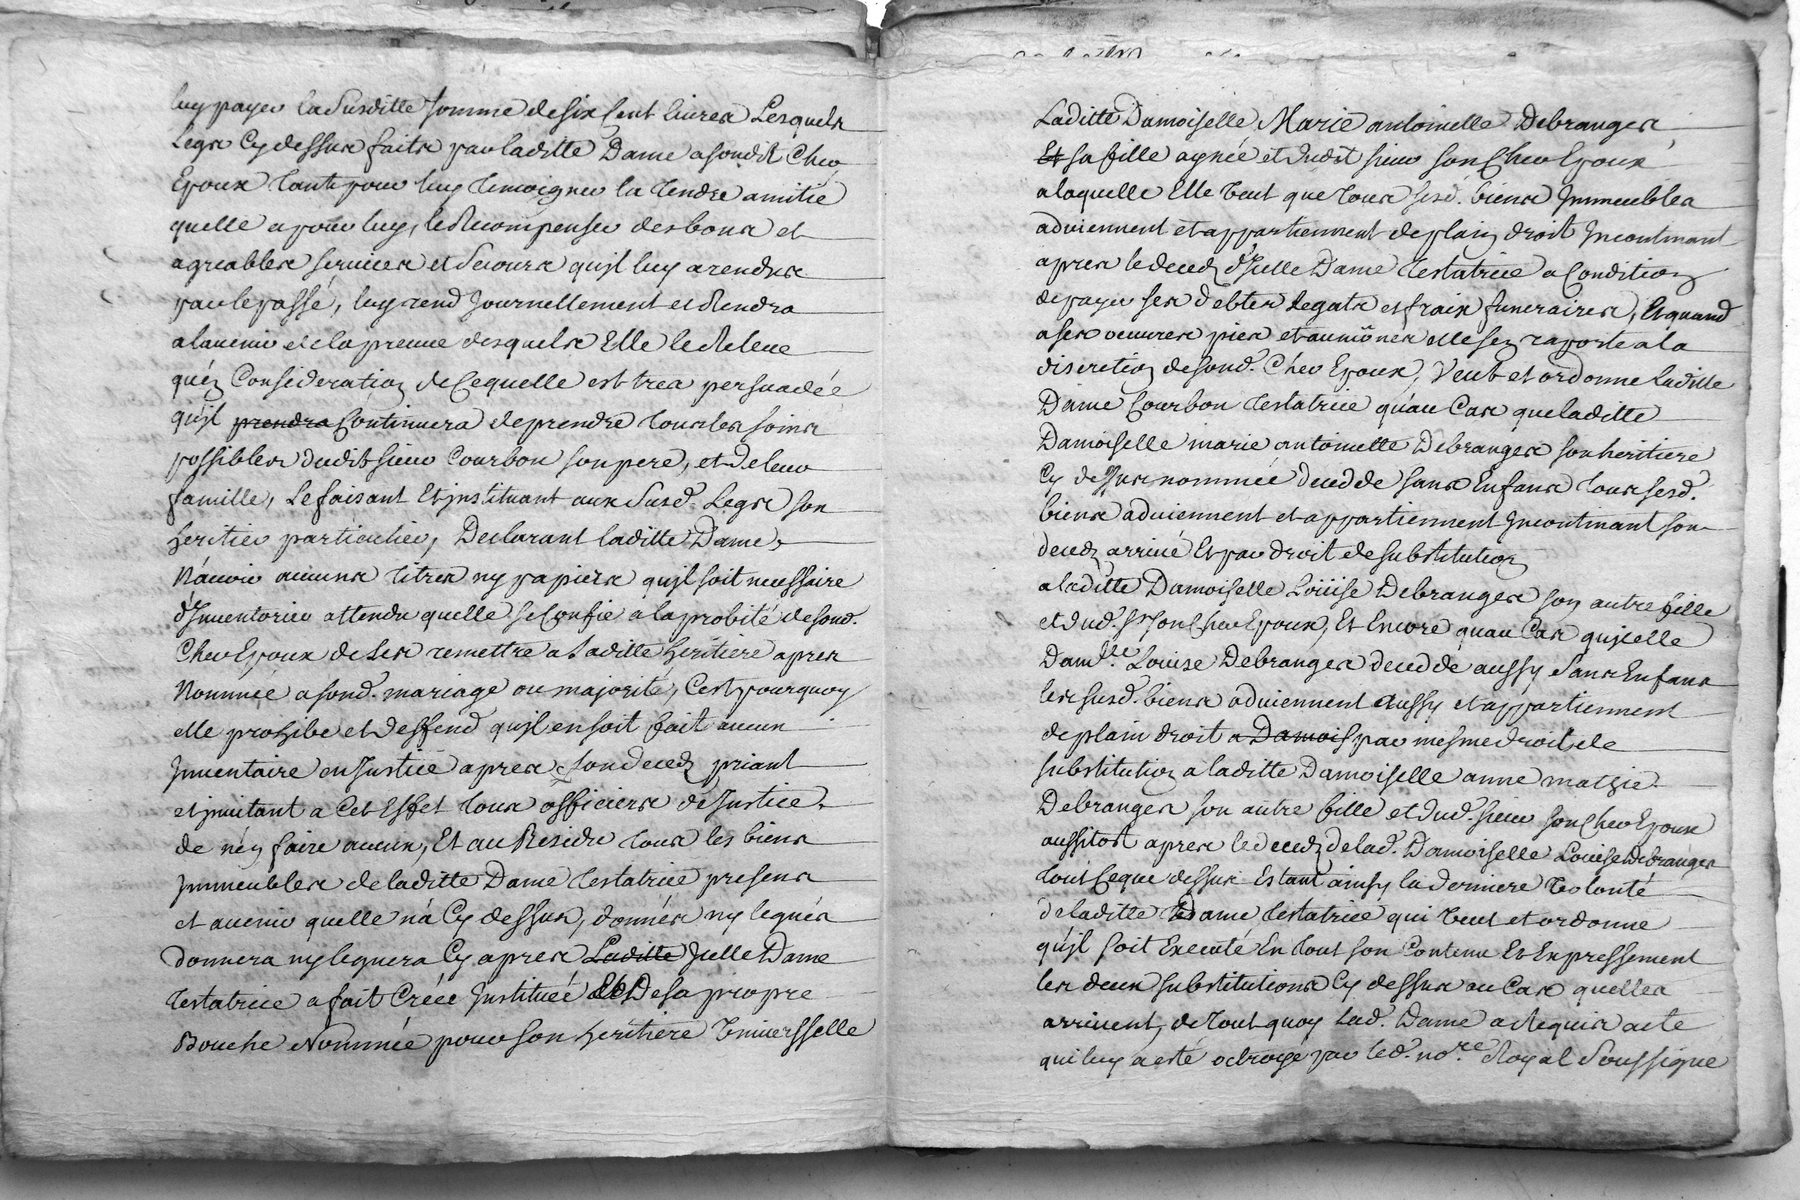 luy payer la Susditte somme de six Cent livres Lesquels
Legs Cy dessus faits par laditte Dame a sondit Cher
Epoux tant pour luy temoigner la tendre amitié
quelle a pour luy, le Recompenser des bons et
agreables services et Secours quil luy a rendus
par le passé, luy rend Journellement et Rendra
a lavenir de la preuve desquels Elle le Releve
qué Consideration de Cequelle est tres persuadée
quil prendra Continuera de prendre tous les soins
possibles dudit sieur Courbon son pere, et de leur
famille, Le faisant Et jnstituant aux Susd. Legs son
heritier particulier, Declarant laditte Dame
N'avoir aucuns titres ny papiers quil soit necessaire
d'Inventorier attendu quelle se Confie a la probité de sond.
Cher Epoux de Les remettre a Laditte heritiere apres
Nommée a sond. mariage ou majorité, Cest pourquoy
elle prohibe et deffend quil en soit fait aucun
Jnventaire en Justice apres son decedz priant
et jnvitant a Cet Effet tous officiers de Justice
de n'en faire aucun, Et au Residu tous les biens
Jmmeubles de laditte Dame testatrice presens
et avenir quelle n'a Cy dessus, donnés ny legués
donnera ny leguera Cy apres Laditte Jcelle Dame
testatrice a fait Créée Jnstituée Et De sa propre
Bouche Nommée pour son heritiere Universselle
Laditte Damoiselle Marie antoinette Debranges
Et sa fille aynée et dudit sieur son Cher Epoux
a laquelle Elle veut que tous sesd. biens Jmmeubles
adviennent et appartiennent de plain droit Jncontinant
apres le decedz d'Jcelle Dame testatrice a Condition
de payer ses debtes Legats et fraix funeraires, Et quand
a ses oeuvres pies et aumônes elle s'en raporte a la
discretion de sond. Cher Epoux, Veut et ordonne laditte
Dame Courbon testatrice qu'au Cas que laditte
Damoiselle marie antoinette Debranges son heritiere
Cy dessus nommée decedde sans Enfans tous sesd.
biens adviennent et appartiennent Jncontinant son
decedz arrivé Et par droit de substitution
a laditte Damoiselle Loüise Debranges son autre fille
et dud. Sr son Cher Epoux, Et Encore quau Cas quicelle
Dam.lle Louise Debranges decedde aussy Sans Enfans
les susd. biens adviennent Aussy et appartiennent
de plain droit a Damois par mesme droit de
substitution a laditte Damoiselle anne mathie
Debranges son autre fille et dud. sieur son Cher Epoux
aussitost apres le decedz de lad. Damoiselle Louise Debranges
tout Ceque dessus Estant ainsy la derniere volonté
de laditte Dame testatrice qui veut et ordonne
quil soit Executé En tout son Contenu Et Expressement
les deux substitutions Cy dessus au Cas quelles
arrivent, de tout quoy Lad. Dame a Requis acte
qui luy a esté octroyé par led. no.re Royal Soussigné